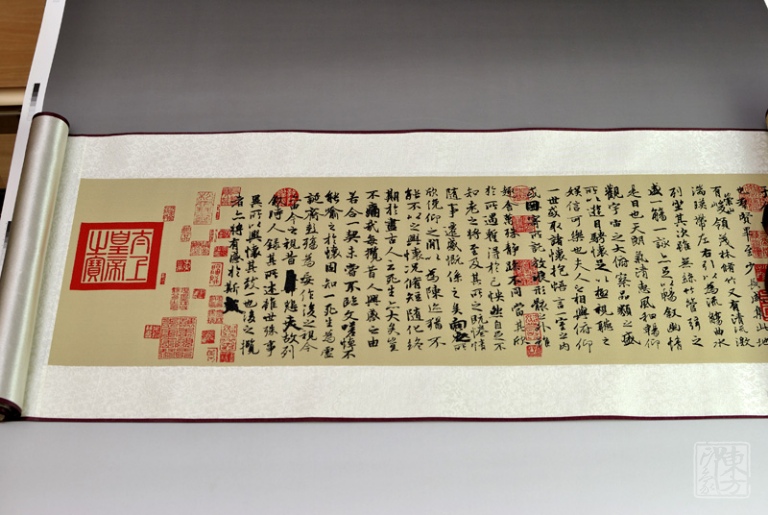 羣賢畢至少長咸集此地
有峻領茂林脩竹又有清流激
湍暎帶左右引以為流觴曲水
列坐其次雖無絲竹管弦之
盛一觴一詠亦足以暢敘幽情
是日也天朗氣清惠風和暢仰
觀宇宙之大俯察品類之盛
所以遊目騁懷足以極視聽之
娛信可樂也夫人之相與俯仰
一世或取諸懷抱悟言一室之內
或因寄所託放浪形骸之外雖
趣舍萬殊靜躁不同當其欣
於所遇蹔得於己怏然自足不
知老之將至及其所之既惓情
隨事遷感慨係之矣向之所
欣俛仰之閒以為陳迹猶不
能不以之興懷況脩短隨化終
期於盡古人云死生亦大矣豈
不痛哉每攬昔人興感之由
若合一契未嘗不臨文嗟悼不
能喻之於懷固知一死生為虛
誕齊彭殤為妄作後之視今
亦由今之視昔悲夫故列
敘時人錄其所述雖世殊事
異所以興懷其致一也後之攬
者亦將有感於斯文
太上
皇帝
之寶